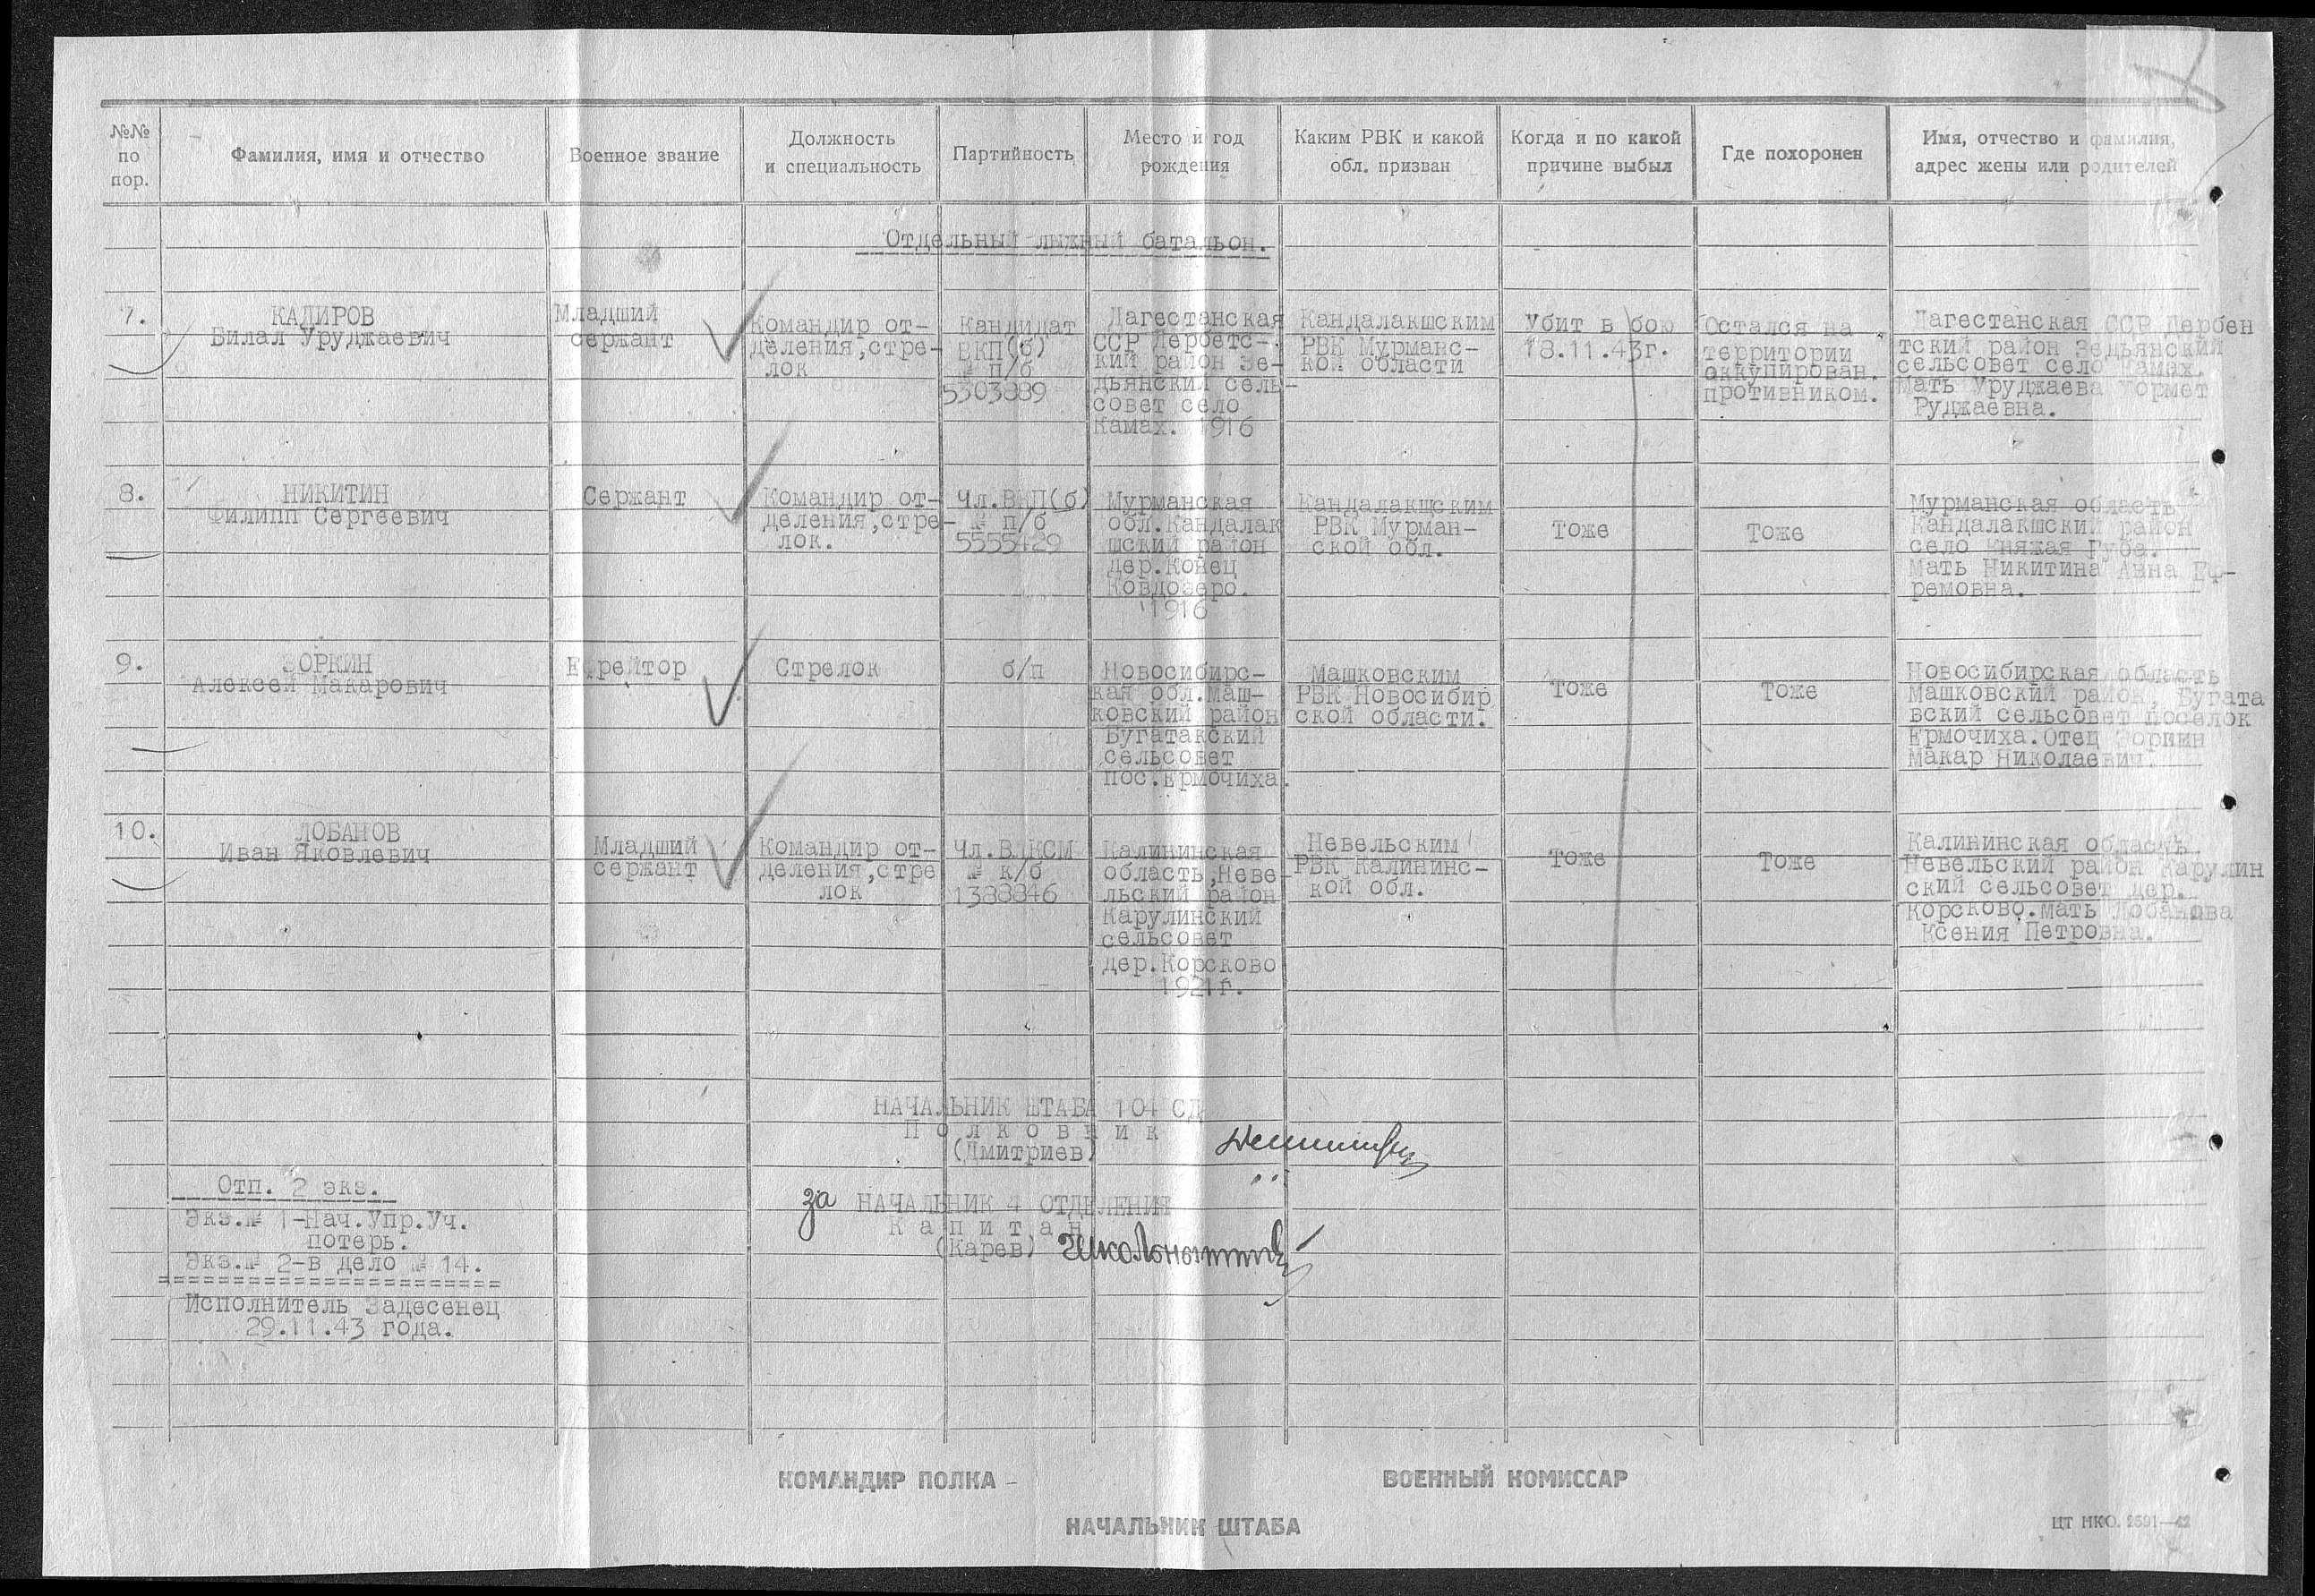 №№
по
пор.
Фамилия, имя и отчество
Военное звание
Должность
и специальность
Партийность
Место и год
рождения
Каким РВК и какой
обл. призван
Когда и по какой
причине выбыл
Где похоронен
Имя, отчество и фамилия,
адрес жены или родителей
Отдельный лыжный батальон.
7.
КАДИРОВ
Билал Уруджаевич
Младший
сержант
Командир от-
деления,стре-
лок
Кандидат
ВКП(б)
№ п/б
5303889
Дагестанская
ССР Дербетс-
кий район Зе-
дьянский сель-
совет село
Камах. 1916
Кандалакшским
РВК Мурманс-
кой области
Убит в бою
18.11.43г.
Остался на
территории
оккупирован.
противником.
Дагестанская ССР Дербен
тский район Зедьянский
сельсовет село Камах.
Мать Уруджаева Гормет
Руджаевна.
8.
НИКИТИН
Филипп Сергеевич
Сержант
Командир от-
деления,стре-
лок.
Чл.ВКП(б)
№ п/б
5555429
Мурманская
обл.Кандалак
шский район
дер.Конец
Ковдозеро.
1916
Кандалакщским
РВК Мурман-
ской обл.
Тоже
Тоже
Мурманская область
Кандалакшский район
село Княжая Губа.
Мать Никитина Анна Еф-
ремовна.
9.
ЗОРКИН
Алексей Макарович
Ефрейтор
Стрелок
б/п
Новосибирс-
кая обл.Маш-
ковский район
Бугатакский
сельсовет
пос.Ермочиха.
Машковским
РВК Новосибир
ской области.
Тоже
Тоже
Новосибирская область
Машковский район, Бугата
вский сельсовет поселок
Ермочиха.Отец Зоркин
Макар Николаевич.
10.
ЛОБАНОВ
Иван Яковлевич
Младший
сержант
Командир от-
деления,стре
лок
Чл.ВЛКСМ
№ к/б
1388846
Калининская
область,Неве-
льский район
Карулинский
сельсовет
дер.Корсково
1921г.
Невельским
РВК Калининс-
кой обл.
Тоже
Тоже
Калининская область
Невельский район Карулин
ский сельсовет дер.
Корсково.мать Лобанова
Ксения Петровна.
НАЧАЛЬНИК ШТАБА 104 СД
Полковник
(Дмитриев)
за НАЧАЛЬНИК 4 ОТДЕЛЕНИЯ
Капитан
(Карев)
Отп. 2 экз.
Экз.№ 1-Нач.Упр.Уч.
потерь.
Экз.№ 2-в дело № 14.
========================
Исполнитель Задесенец
29.11.43 года.
КОМАНДИР ПОЛКА -
ВОЕННЫЙ КОМИССАР
НАЧАЛЬНИК ШТАБА
ЦТ НКО. 2591—42